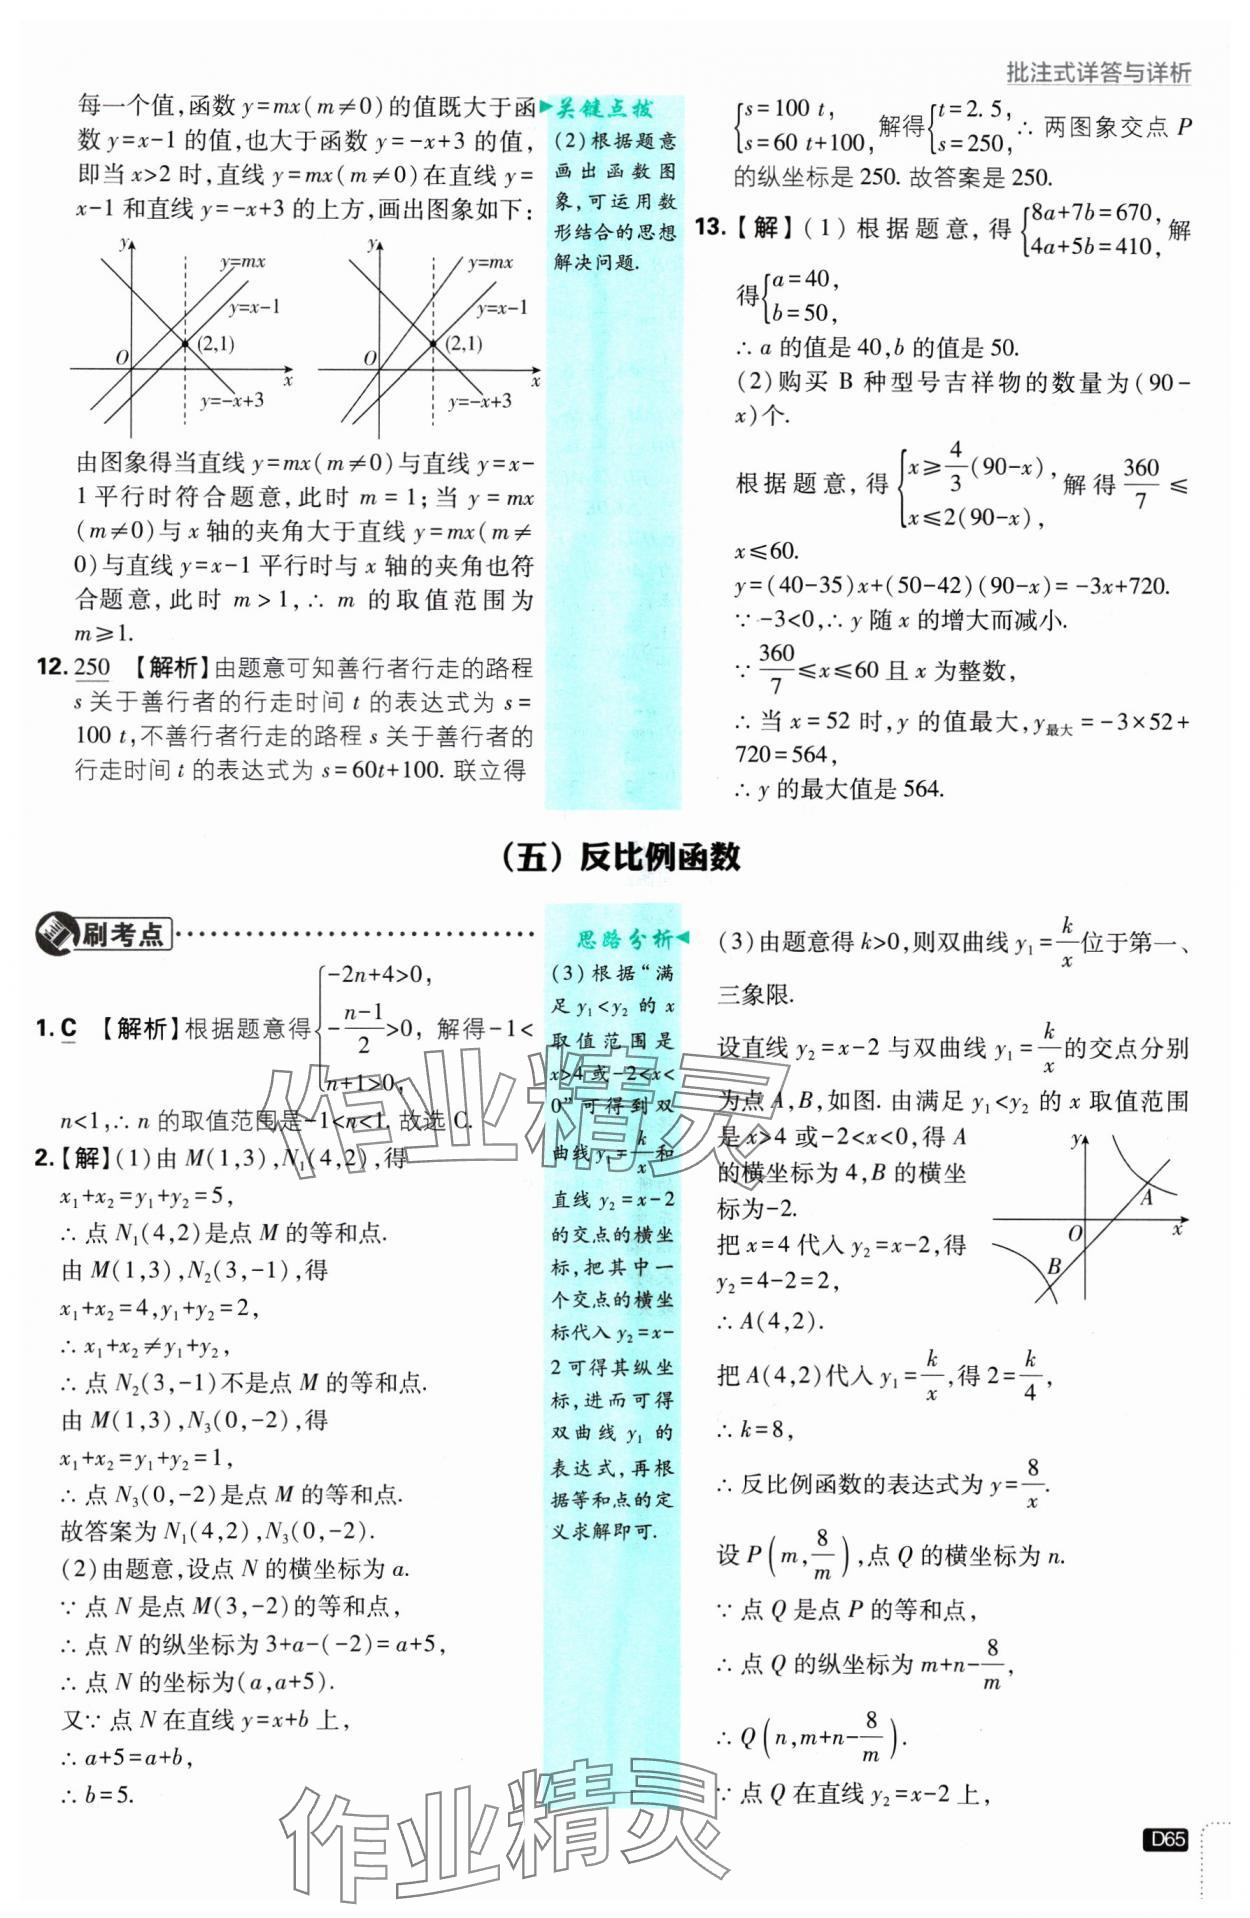 批注式详答与详析
每一个值,函数 y=mx(m≠0)的值既大于函
数 y=x-1 的值,也大于函数 y=-x+3 的值,
即当 x>2 时,直线 y=mx(m≠0)在直线 y=
x-1 和直线 y=-x+3 的上方,画出图象如下:
y
y=mx
y=x-1
(2,1)
O
x
y=-x+3
y
y=mx
y=x-1
(2,1)
O
x
y=-x+3
由图象得当直线 y=mx(m≠0)与直线 y=x-
1 平行时符合题意,此时 m=1;当 y=mx
(m≠0)与 x 轴的夹角大于直线 y=mx(m≠
0)与直线 y=x-1 平行时与 x 轴的夹角也符
合题意,此时 m>1,∴ m 的取值范围为
m≥1.
12. 250 【解析】由题意可知善行者行走的路程
s 关于善行者的行走时间 t 的表达式为 s=
100 t,不善行者行走的路程 s 关于善行者的
行走时间 t 的表达式为 s=60t+100. 联立得
关键点拨
(2)根据题意
画出函数图
象,可运用数
形结合的思想
解决问题.
{s=100 t, s=60 t+100, 解得{t=2.5, s=250, ∴ 两图象交点 P
的纵坐标是 250. 故答案是 250.
13. 【解】(1)根据题意,得{8a+7b=670, 4a+5b=410, 解
得{a=40, b=50,
∴ a 的值是 40,b 的值是 50.
(2)购买 B 种型号吉祥物的数量为(90-
x)个.
根据题意,得{x≥4/3(90-x), x≤2(90-x), 解得360/7≤
x≤60.
y=(40-35)x+(50-42)(90-x)=-3x+720.
∵ -3<0,∴ y 随 x 的增大而减小.
∵ 360/7≤x≤60 且 x 为整数,
∴ 当 x=52 时,y 的值最大,y最大=-3×52+
720=564,
∴ y 的最大值是 564.
(五)反比例函数
刷考点
1. C 【解析】根据题意得{-2n+4>0, -(n-1)/2>0, n+1>0, 解得-1<
n<1,∴ n 的取值范围是-1<n<1. 故选 C.
2. 【解】(1)由 M(1,3),N₁(4,2),得
x₁+x₂=y₁+y₂=5,
∴ 点 N₁(4,2)是点 M 的等和点.
由 M(1,3),N₂(3,-1),得
x₁+x₂=4,y₁+y₂=2,
∴ x₁+x₂≠y₁+y₂,
∴ 点 N₂(3,-1)不是点 M 的等和点.
由 M(1,3),N₃(0,-2),得
x₁+x₂=y₁+y₂=1,
∴ 点 N₃(0,-2)是点 M 的等和点.
故答案为 N₁(4,2),N₃(0,-2).
(2)由题意,设点 N 的横坐标为 a.
∵ 点 N 是点 M(3,-2)的等和点,
∴ 点 N 的纵坐标为 3+a-(-2)=a+5,
∴ 点 N 的坐标为(a,a+5).
又∵ 点 N 在直线 y=x+b 上,
∴ a+5=a+b,
∴ b=5.
思路分析
(3)根据“满
足 y₁<y₂ 的 x
取值范围是
x>4 或-2<x<
0”可得到双
曲线 y₁=k/x和
直线 y₂=x-2
的交点的横坐
标,把其中一
个交点的横坐
标代入 y₂=x-
2 可得其纵坐
标,进而可得
双曲线 y₁ 的
表达式,再根
据等和点的定
义求解即可.
(3)由题意得 k>0,则双曲线 y₁=k/x位于第一、
三象限.
设直线 y₂=x-2 与双曲线 y₁=k/x的交点分别
为点 A,B,如图. 由满足 y₁<y₂ 的 x 取值范围
是 x>4 或-2<x<0,得 A
的横坐标为 4,B 的横坐
标为-2.
把 x=4 代入 y₂=x-2,得
y₂=4-2=2,
∴ A(4,2).
y
A
O
x
B
把 A(4,2)代入 y₁=k/x,得 2=k/4,
∴ k=8,
∴ 反比例函数的表达式为 y=8/x.
设 P(m,8/m),点 Q 的横坐标为 n.
∵ 点 Q 是点 P 的等和点,
∴ 点 Q 的纵坐标为 m+n-8/m,
∴ Q(n,m+n-8/m).
∵ 点 Q 在直线 y₂=x-2 上,
D65
作业精灵
作业精灵